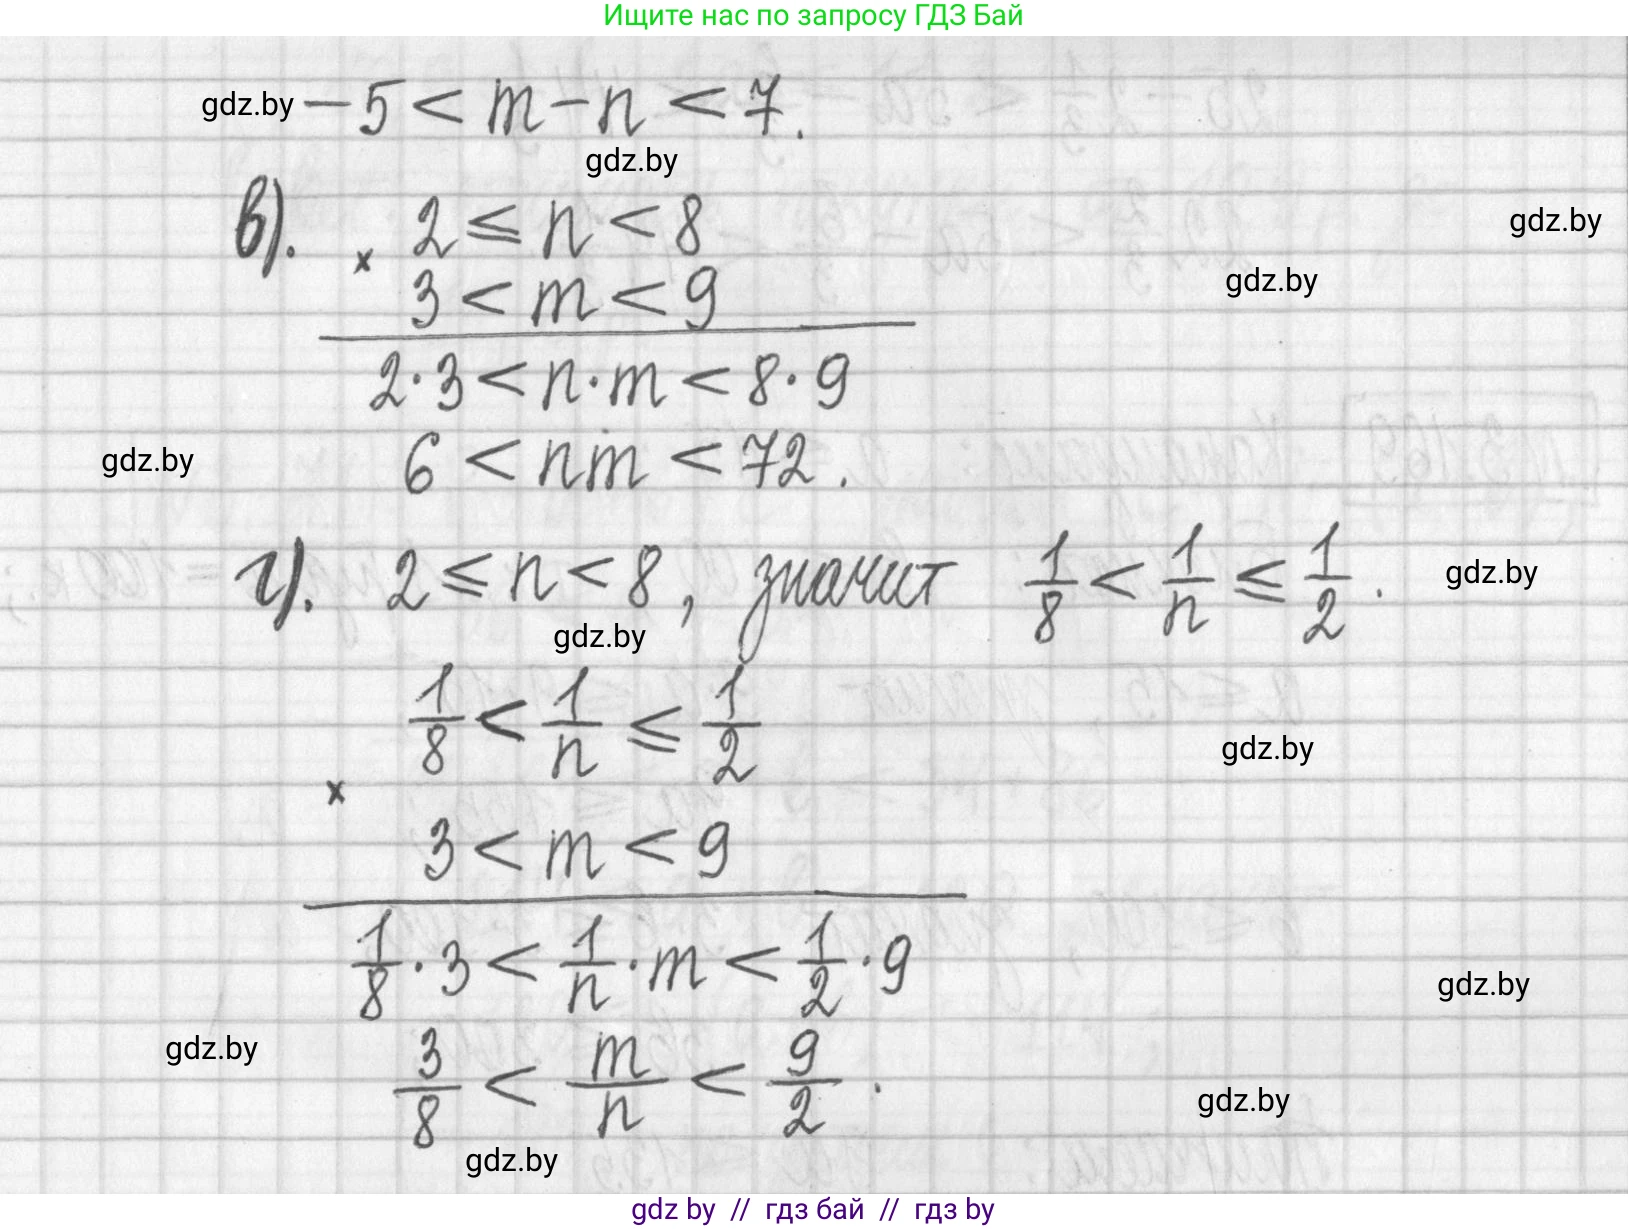 Ищите нас по запросу ГДЗ Бай
gdz.by −5 < m − n < 7.
gdz.by
в). 2 ≤ n < 8
gdz.by
× 3 < m < 9
gdz.by
2·3 < n·m < 8·9
gdz.by 6 < nm < 72.
г). 2 ≤ n < 8, значит 1/8 < 1/n ≤ 1/2.
gdz.by
gdz.by
1/8 < 1/n ≤ 1/2
gdz.by
×
3 < m < 9
1/8·3 < 1/n·m < 1/2·9
gdz.by
gdz.by
3/8 < m/n < 9/2.
gdz.by
gdz.by
gdz by // гдз бай // гдз by